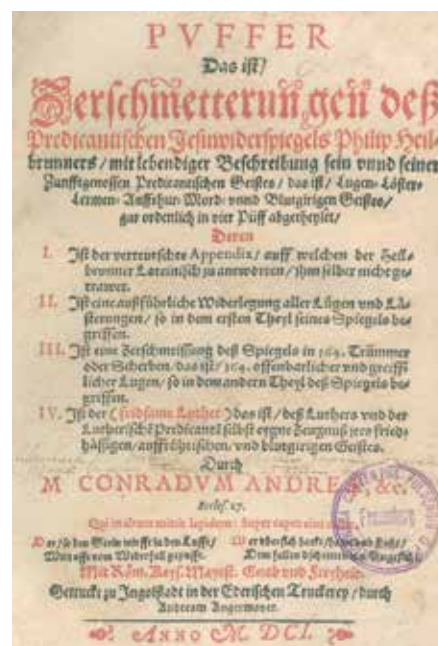 PVFFER
Das ist/
Zerschmetterungen deß
Predicantischen Jesuwiderspiegels Philip Heil-
brunners/ mit lebendiger Beschreibung sein vnnd seiner
Zunfftgenossen Predicantischen Geistes/ das ist/ Lugen- Löster-
Lermen- Auffrhur- Mord- vnnd Blutgirigen Geistes/
gar ordentlich in vier Püff abgetheylet/
Deren
I. Ist der verteutschte Appendix/ auff welchen der Heil-
brunner Lateinisch zu antworten/ jhm selber nicht ge-
trawet.
II. Ist eine außführliche Widerlegung aller Lügen vnd Lä-
sterungen/ so in dem ersten Theyl seines Spiegels be-
griffen.
III. Ist eine Zerschmeissung deß Spiegels in 164. Trümmer
oder Scherben/ das ist/ 164. offenbarlicher vnd greiff-
licher Lugen/ so in dem andern Theyl deß Spiegels be-
griffen.
IV. Ist der (seidsame Luther) das ist/ deß Luthers vnd der
Lutherischē Predicantē selbst eygne Zeugnuß jres fried-
hässigen/ auffrührischen/ vnd blutgirigen Geistes.
Durch
M CONRADVM ANDREÆ, &c.
Eccles. 27.
Qui in altum mittit lapidem: super caput eius cadet.
Der/ so den Stein wirfft in den Lufft/
Mit Röm. Kays. Mayest. Gnad vnd Freyheit.
Getruckt zu Ingolstadt in der Ederischen Truckerey/ durch
Andream Angermayer.
ANNO M. DCI.